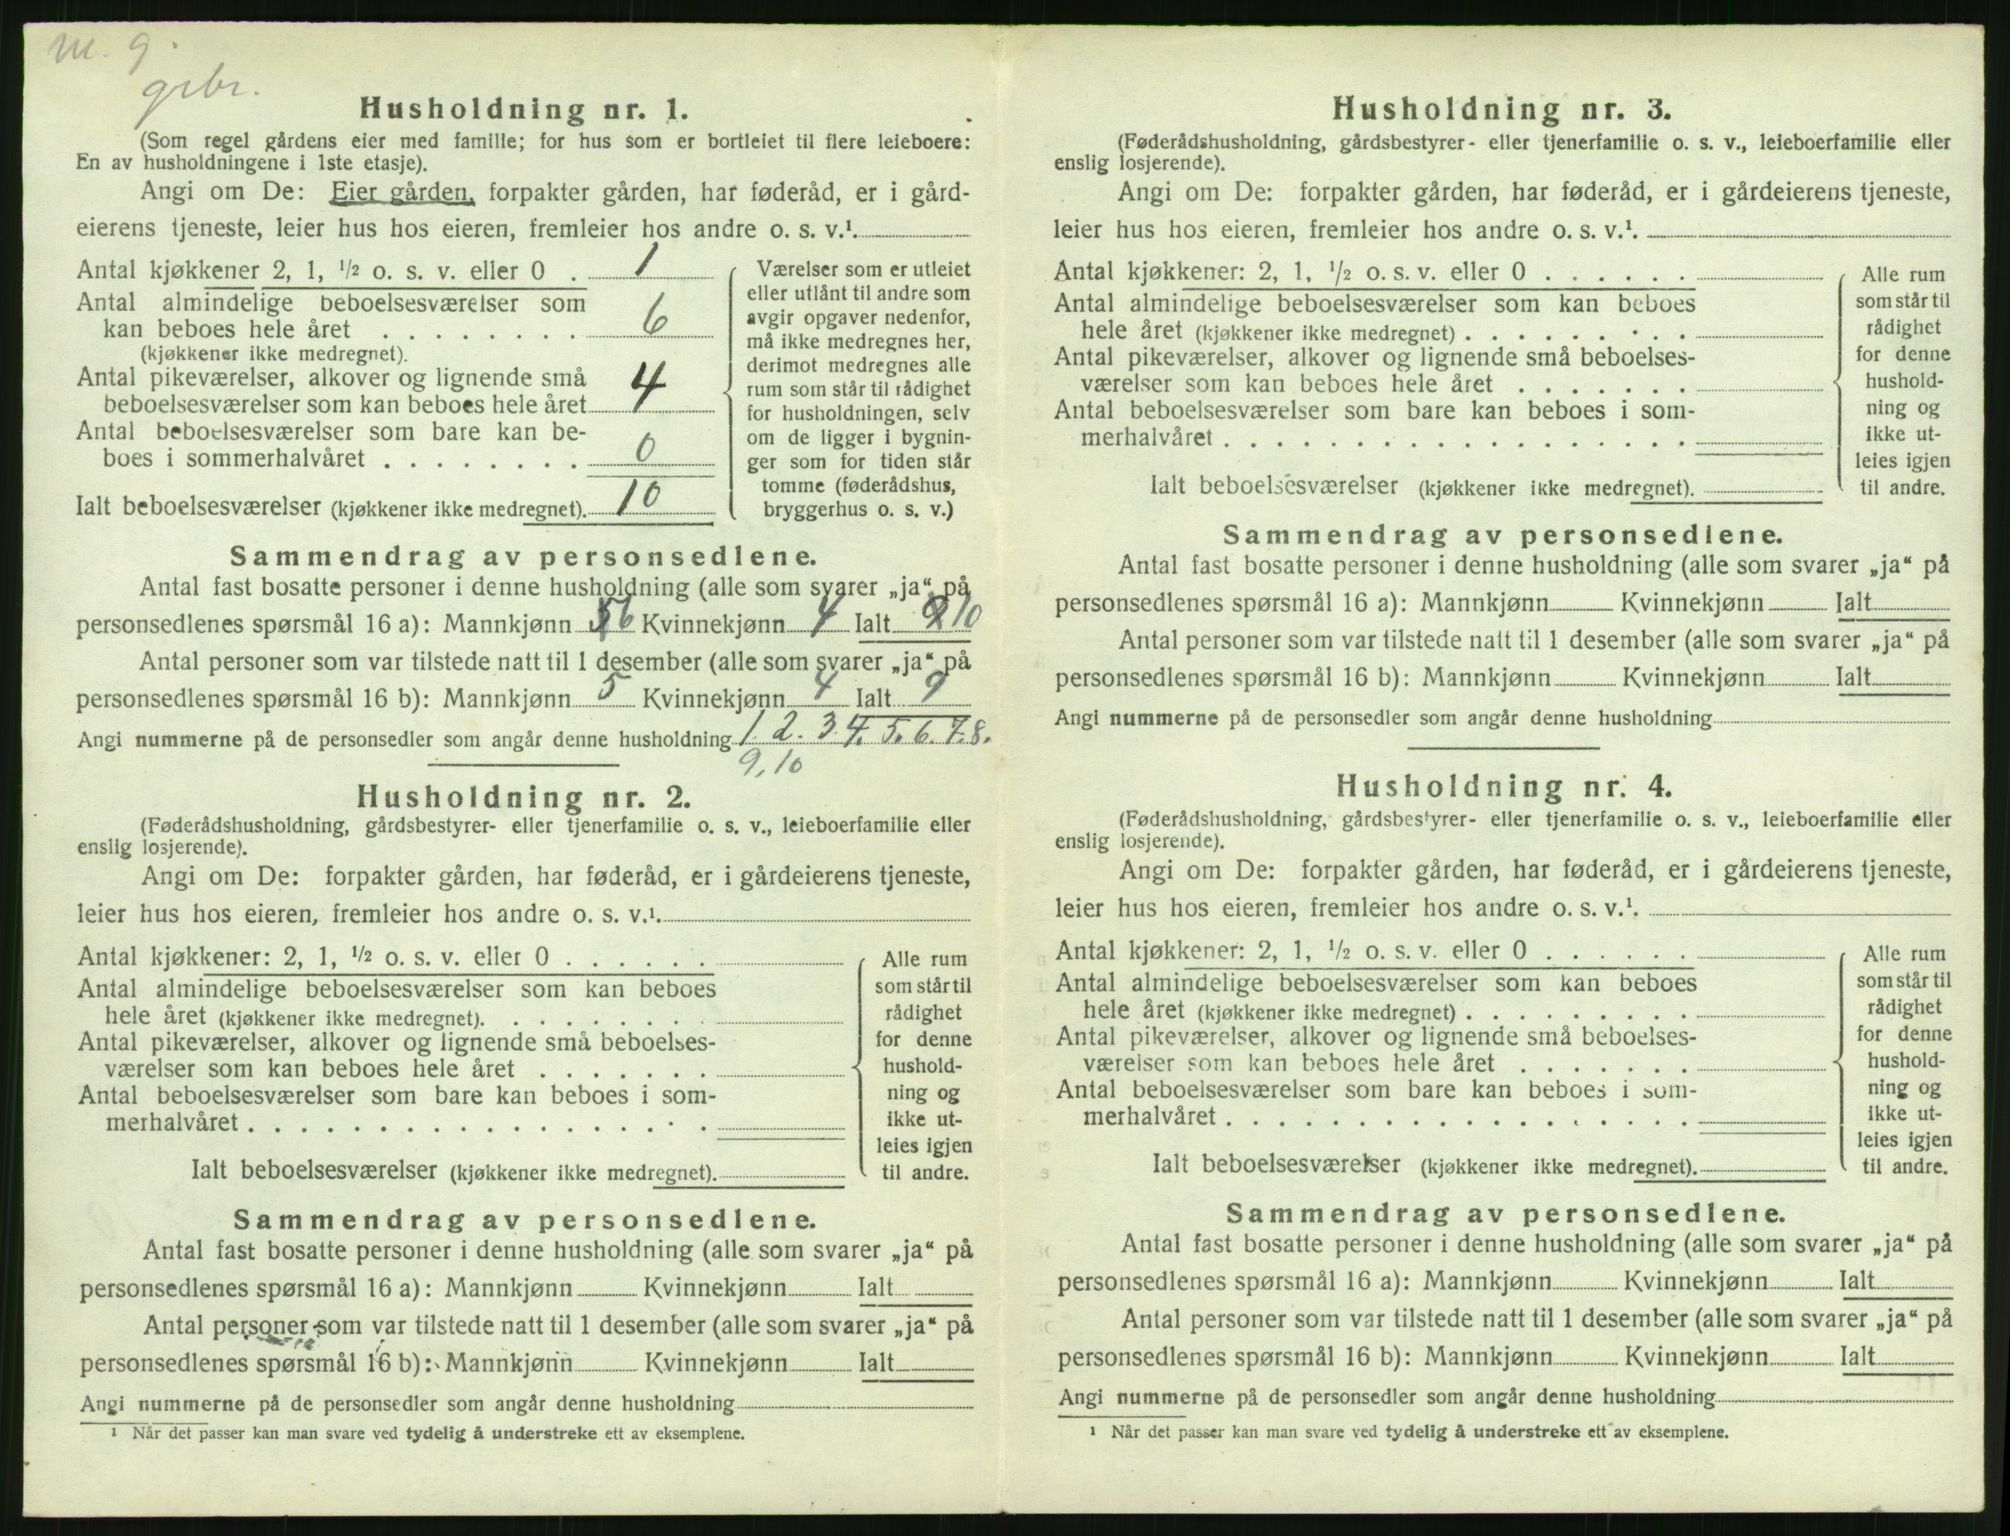 m. 9.
grbr.
Husholdning nr. 1.
(Som regel gårdens eier med familie; for hus som er bortleiet til flere leieboere:
En av husholdningene i 1ste etasje).
Angi om De: Eier gården, forpakter gården, har føderåd, er i gård-
eierens tjeneste, leier hus hos eieren, fremleier hos andre o. s. v.¹.
Antal kjøkkener 2, 1, ½ o. s. v. eller 0 . 1
Antal almindelige beboelsesværelser som
kan beboes hele året . . . . . . . . 6
(kjøkkener ikke medregnet).
Antal pikeværelser, alkover og lignende små
beboelsesværelser som kan beboes hele året 4
Antal beboelsesværelser som bare kan be-
boes i sommerhalvåret . . . . . . . . 0
Ialt beboelsesværelser (kjøkkener ikke medregnet). 10
Værelser som er utleiet
eller utlånt til andre som
avgir opgaver nedenfor,
må ikke medregnes her,
derimot medregnes alle
rum som står til rådighet
for husholdningen, selv
om de ligger i bygnin-
ger som for tiden står
tomme (føderådshus,
bryggerhus o. s. v.)
Sammendrag av personsedlene.
Antal fast bosatte personer i denne husholdning (alle som svarer „ja“ på
personsedlenes spørsmål 16 a): Mannkjønn 5 6 Kvinnekjønn 4 Ialt 9 10
Antal personer som var tilstede natt til 1 desember (alle som svarer „ja“ på
personsedlenes spørsmål 16 b): Mannkjønn 5 Kvinnekjønn 4 Ialt 9
Angi nummerne på de personsedler som angår denne husholdning 1. 2. 3. 4. 5. 6. 7. 8.
9, 10
Husholdning nr. 2.
(Føderådshusholdning, gårdsbestyrer- eller tjenerfamilie o. s. v., leieboerfamilie eller
enslig losjerende).
Angi om De: forpakter gården, har føderåd, er i gårdeierens tjeneste,
leier hus hos eieren, fremleier hos andre o. s. v.¹.
Antal kjøkkener: 2, 1, ½ o. s. v. eller 0 . . . . . .
Antal almindelige beboelsesværelser som kan beboes
hele året (kjøkkener ikke medregnet). . . . . . . . .
Antal pikeværelser, alkover og lignende små beboelses-
værelser som kan beboes hele året . . . . . . .
Antal beboelsesværelser som bare kan beboes i som-
merhalvåret . . . . . . . . . . . . . . . . . .
Ialt beboelsesværelser (kjøkkener ikke medregnet).
Alle rum
som står til
rådighet
for denne
hushold-
ning og
ikke ut-
leies igjen
til andre.
Sammendrag av personsedlene.
Antal fast bosatte personer i denne husholdning (alle som svarer „ja“ på
personsedlenes spørsmål 16 a): Mannkjønn Kvinnekjønn Ialt
Antal personer som var tilstede natt til 1 desember (alle som svarer „ja“ på
personsedlenes spørsmål 16 b): Mannkjønn Kvinnekjønn Ialt
Angi nummerne på de personsedler som angår denne husholdning
¹ Når det passer kan man svare ved tydelig å understreke ett av eksemplene.
Husholdning nr. 3.
(Føderådshusholdning, gårdsbestyrer- eller tjenerfamilie o. s. v., leieboerfamilie eller
enslig losjerende).
Angi om De: forpakter gården, har føderåd, er i gårdeierens tjeneste,
leier hus hos eieren, fremleier hos andre o. s. v.¹.
Antal kjøkkener: 2, 1, ½ o. s. v. eller 0 . . . . . .
Antal almindelige beboelsesværelser som kan beboes
hele året (kjøkkener ikke medregnet) . . . . . . . . .
Antal pikeværelser, alkover og lignende små beboelses-
værelser som kan beboes hele året . . . . . . .
Antal beboelsesværelser som bare kan beboes i som-
merhalvåret . . . . . . . . . . . . . . . . . .
Ialt beboelsesværelser (kjøkkener ikke medregnet).
Alle rum
som står til
rådighet
for denne
hushold-
ning og
ikke ut-
leies igjen
til andre.
Sammendrag av personsedlene.
Antal fast bosatte personer i denne husholdning (alle som svarer „ja“ på
personsedlenes spørsmål 16 a): Mannkjønn Kvinnekjønn Ialt
Antal personer som var tilstede natt til 1 desember (alle som svarer „ja“ på
personsedlenes spørsmål 16 b): Mannkjønn Kvinnekjønn Ialt
Angi nummerne på de personsedler som angår denne husholdning
Husholdning nr. 4.
(Føderådshusholdning, gårdsbestyrer- eller tjenerfamilie o. s. v., leieboerfamilie eller
enslig losjerende).
Angi om De: forpakter gården, har føderåd, er i gårdeierens tjeneste,
leier hus hos eieren, fremleier hos andre o. s. v.¹.
Antal kjøkkener: 2, 1, ½ o. s. v. eller 0 . . . . . .
Antal almindelige beboelsesværelser som kan beboes
hele året (kjøkkener ikke medregnet) . . . . . . . . .
Antal pikeværelser, alkover og lignende små beboelses-
værelser som kan beboes hele året . . . . . . .
Antal beboelsesværelser som bare kan beboes i som-
merhalvåret . . . . . . . . . . . . . . . . . .
Ialt beboelsesværelser (kjøkkener ikke medregnet).
Alle rum
som står til
rådighet
for denne
hushold-
ning og
ikke ut-
leies igjen
til andre.
Sammendrag av personsedlene.
Antal fast bosatte personer i denne husholdning (alle som svarer „ja“ på
personsedlenes spørsmål 16 a): Mannkjønn Kvinnekjønn Ialt
Antal personer som var tilstede natt til 1 desember (alle som svarer „ja“ på
personsedlenes spørsmål 16 b): Mannkjønn Kvinnekjønn Ialt
Angi nummerne på de personsedler som angår denne husholdning
¹ Når det passer kan man svare ved tydelig å understreke ett av eksemplene.